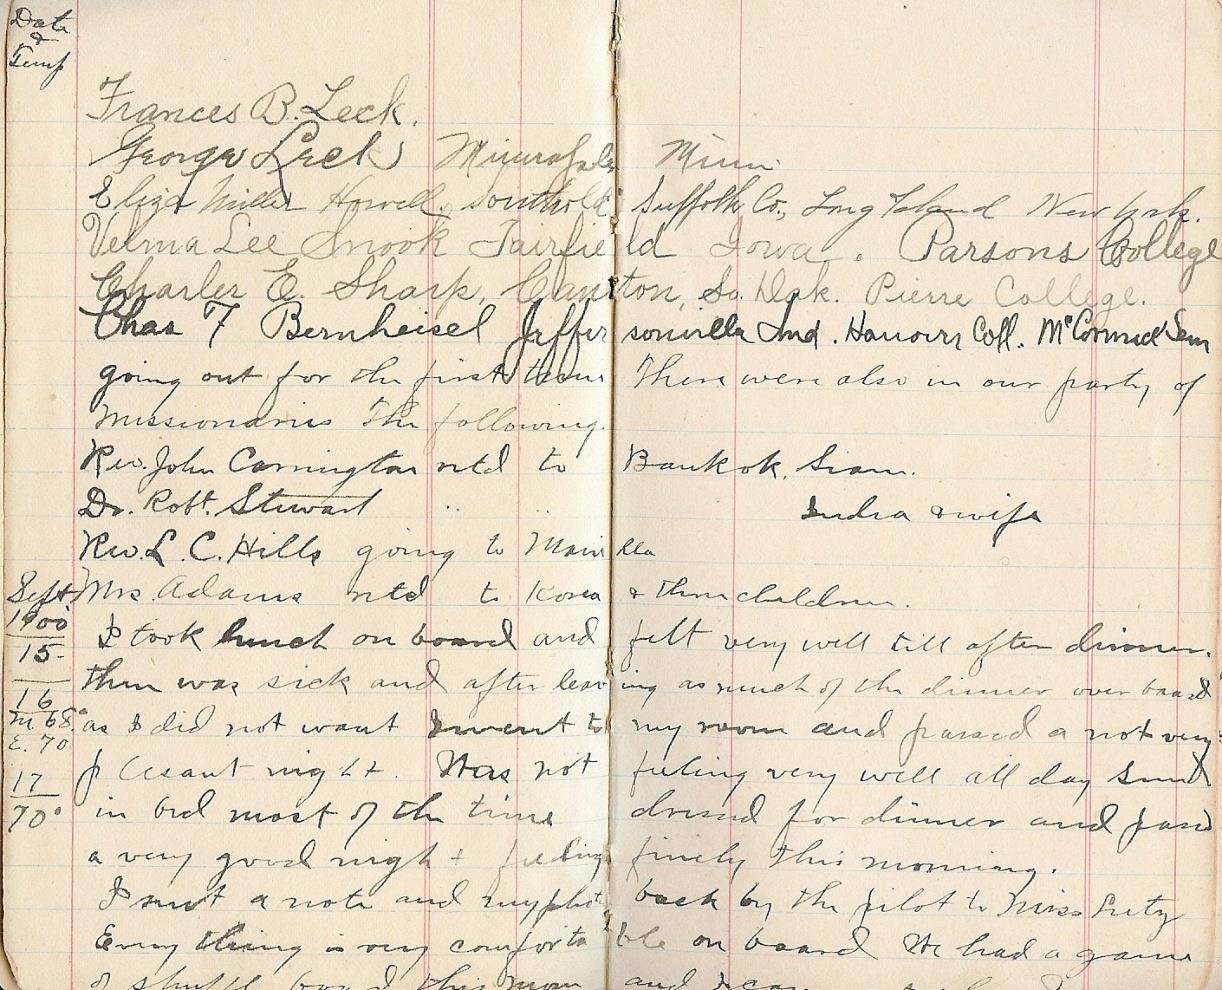 Date
&
Temp
Frances B. Leck.
George Leck Minneapolis Minn.
Eliza Miller Howell, Southold Suffolk Co., Long Island New York.
Velma Lee Snook Fairfield Iowa. Parsons College
Charles E. Sharp, Canton, So. Dak. Pierre College.
Chas F Bernheisel Jeffersonville Ind. Hanover Coll. McCormick Sem
going out for the first time There were also in our party of
Missionaries the following.
Rev. John Carrington retd to Bankok, Siam.
Dr. Robt. Stewart " " India & wife
Rev. L. C. Hills going to Manilla
Mrs. Adams retd to Korea & three children.
Sept
1900
15
I took lunch on board and felt very well till after dinner.
then was sick and after leaving as much of the dinner over board
16
M. 68°
E. 70
as I did not want I went to my room and passed a not very
pleasant night. Was not feeling very well all day Sund
17
70°
in bed most of the time dressed for dinner and passd
a very good night feeling finely this morning.
I sent a note and my photo back by the pilot to Miss Lutz
Every thing is very comfortable on board We had a game
of shuffle board this morn and I